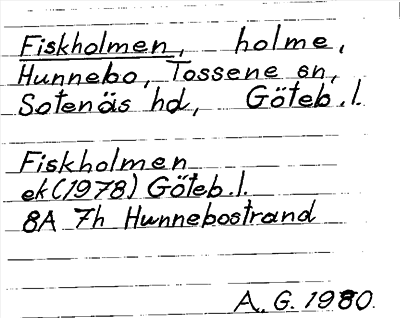 Fiskholmen, holme,
Hunnebo, Tossene sn,
Sotenäs hd, Göteb.l.
Fiskholmen
ek (1978) Göteb.l.
8A 7h Hunnebostrand
A. G. 1980.